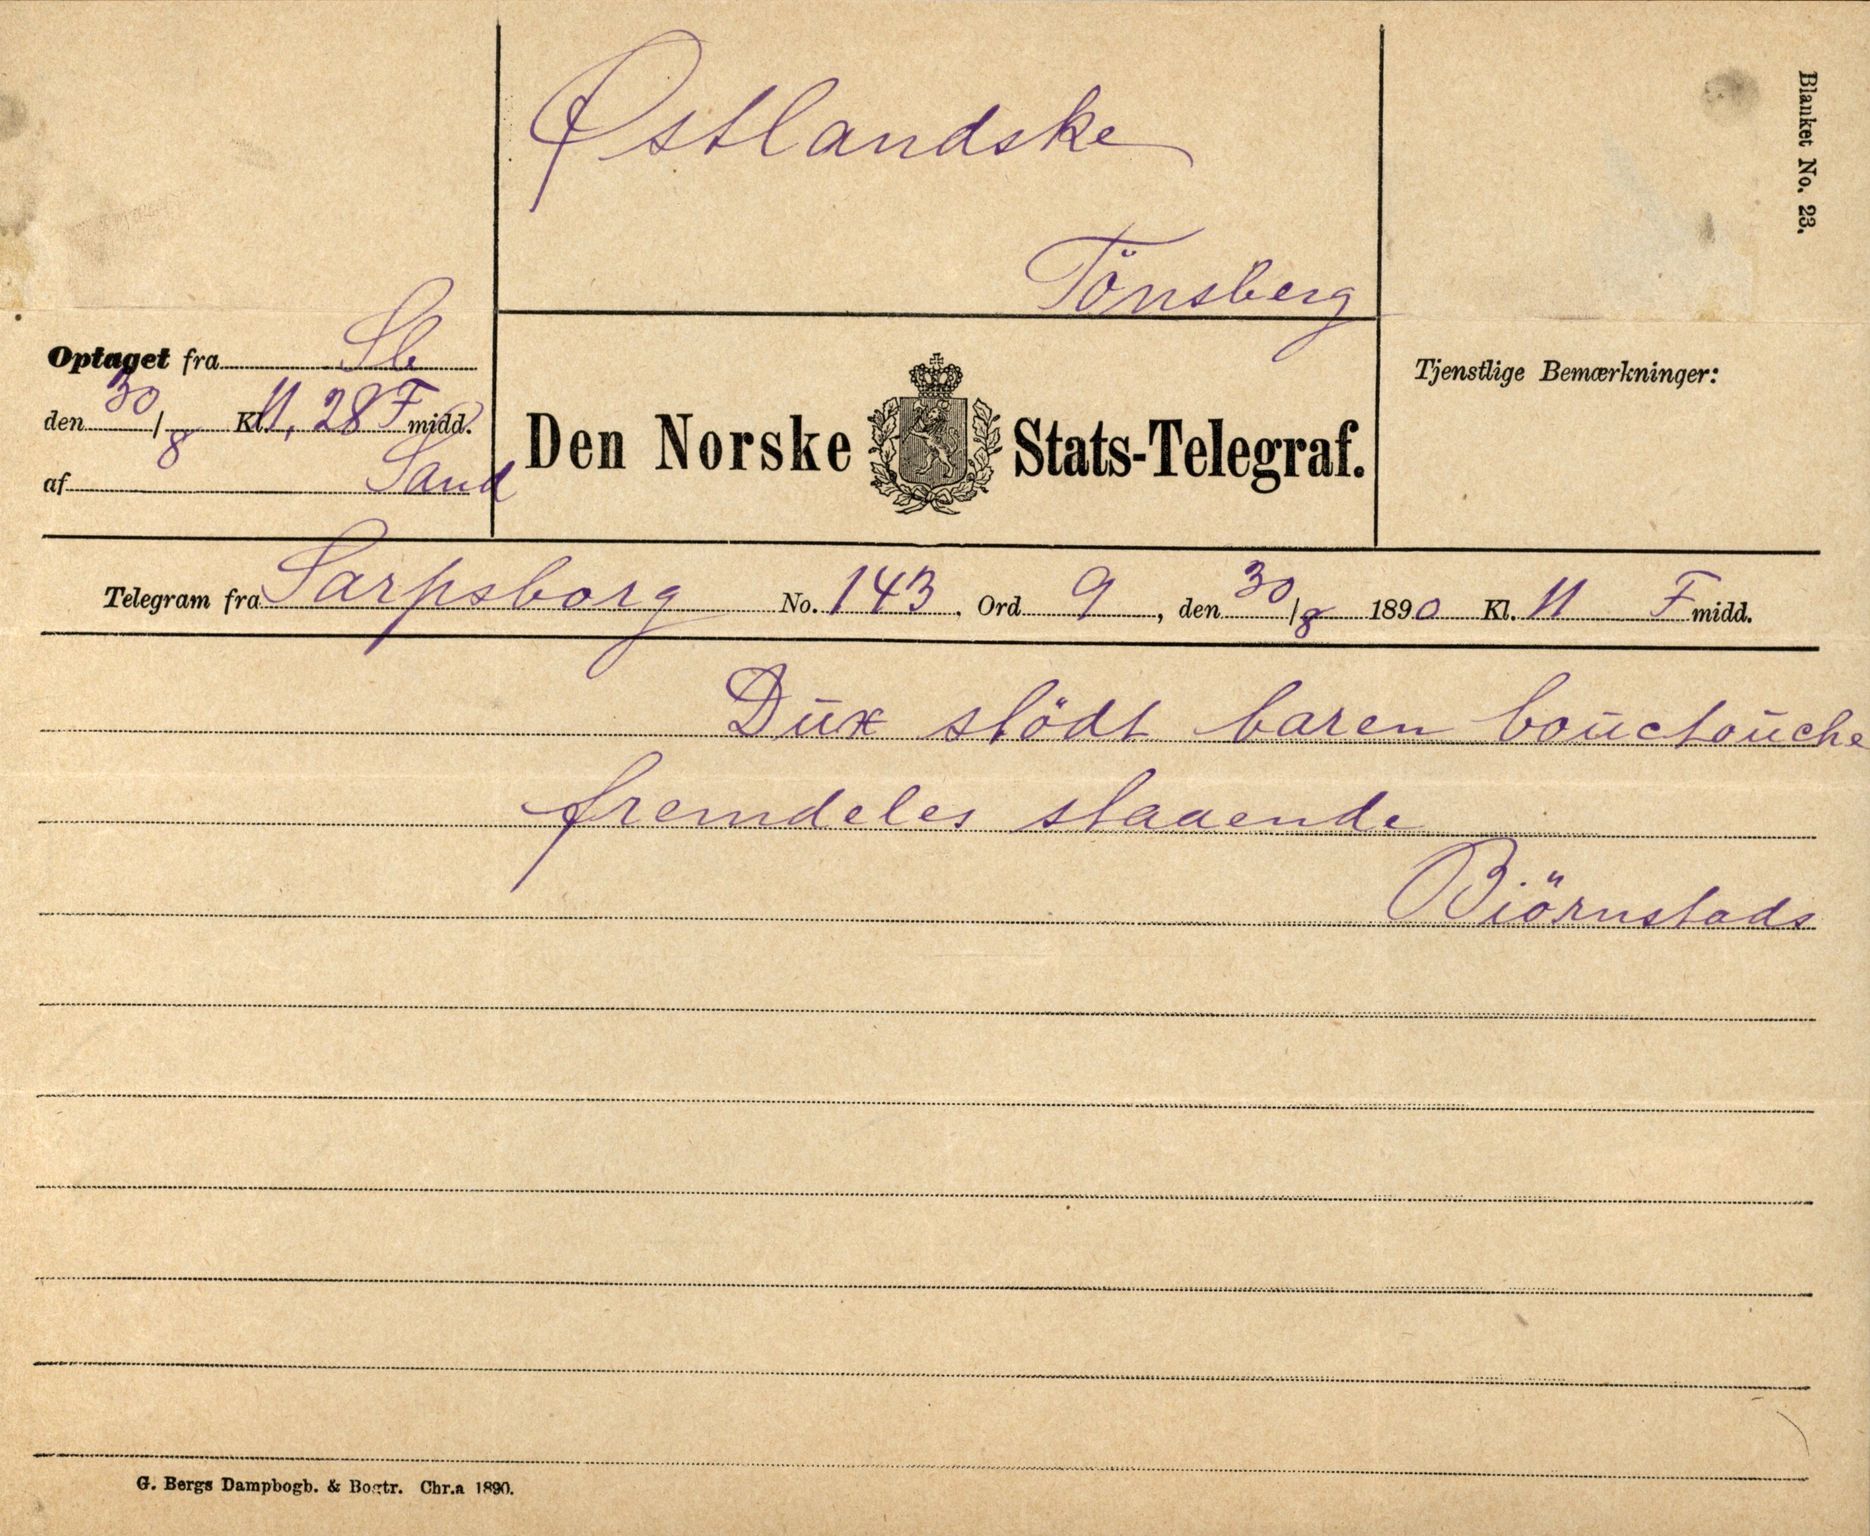 Østlandske
Tönsberg
Blanket No. 23.
Optaget fra Sb
den 30/8 Kl. 11,28 F midd.
af Sand
Den Norske Stats-Telegraf.
Tjenstlige Bemærkninger:
Telegram fra Sarpsborg No. 143. Ord 9, den 30/8 1890 Kl. 11 F midd.
Dux stödt baren bouctouche
fremdeles staaende
Biörnstads
G. Bergs Dampbogb. & Bogtr. Chr.a 1890.